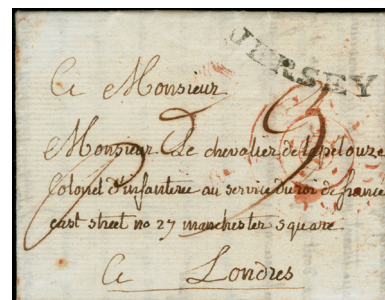 JERSEY
A Monsieur
Monsieur Le chevalier de lapelouze
Colonel d'infanterie au service du roi de france
east street no 27 manchester square
A Londres